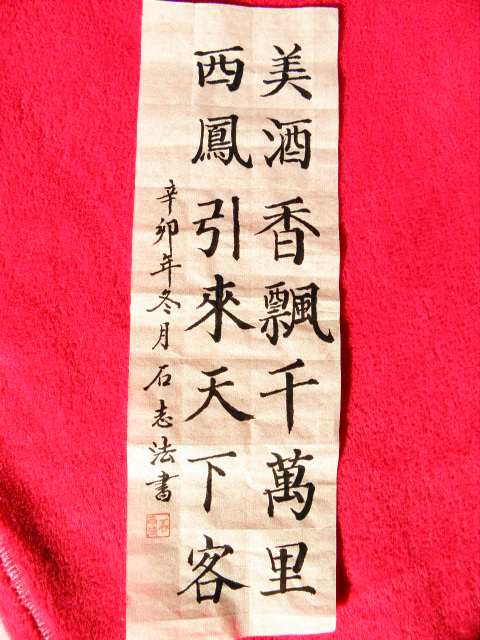 美酒香飄千萬里
西鳳引來天下客
辛卯年冬月石志法書